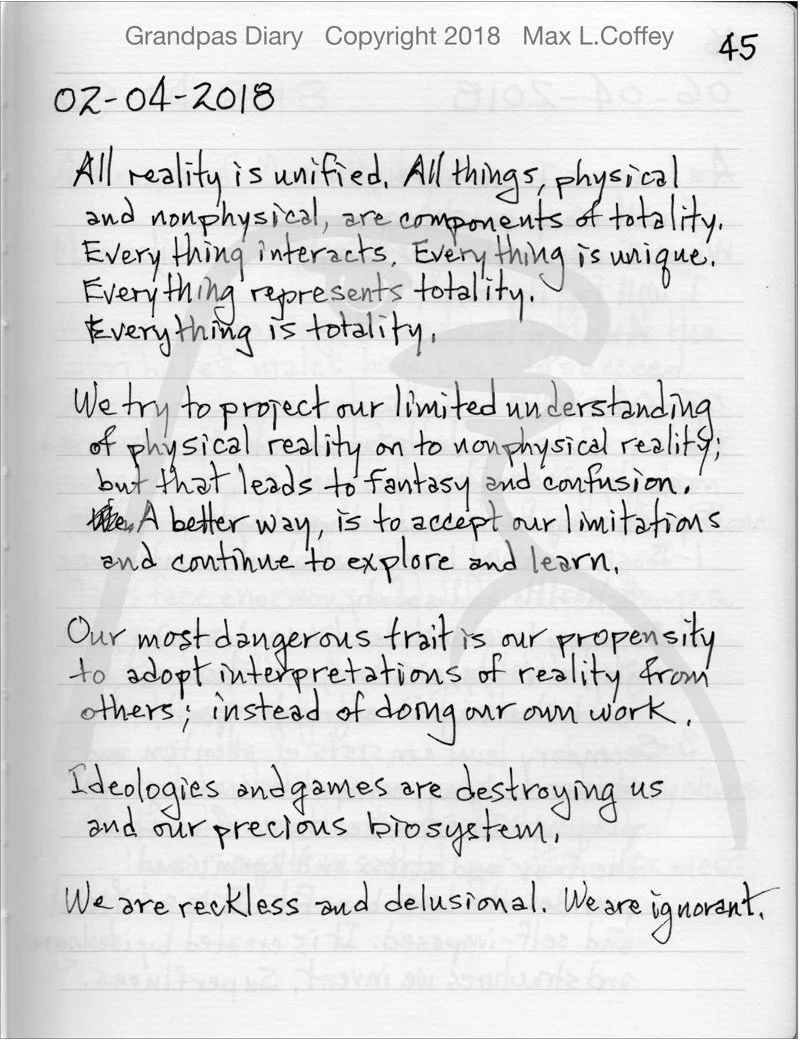 Grandpas Diary Copyright 2018 Max L.Coffey
45
02-04-2018
All reality is unified. All things, physical
and nonphysical, are components of totality.
Every thing interacts. Every thing is unique.
Everything represents totality.
Everything is totality.
We try to project our limited understanding
of physical reality on to nonphysical reality;
but that leads to fantasy and confusion.
A better way, is to accept our limitations
and continue to explore and learn.
Our most dangerous trait is our propensity
to adopt interpretations of reality from
others; instead of doing our own work.
Ideologies and games are destroying us
and our precious biosystem.
We are reckless and delusional. We are ignorant.